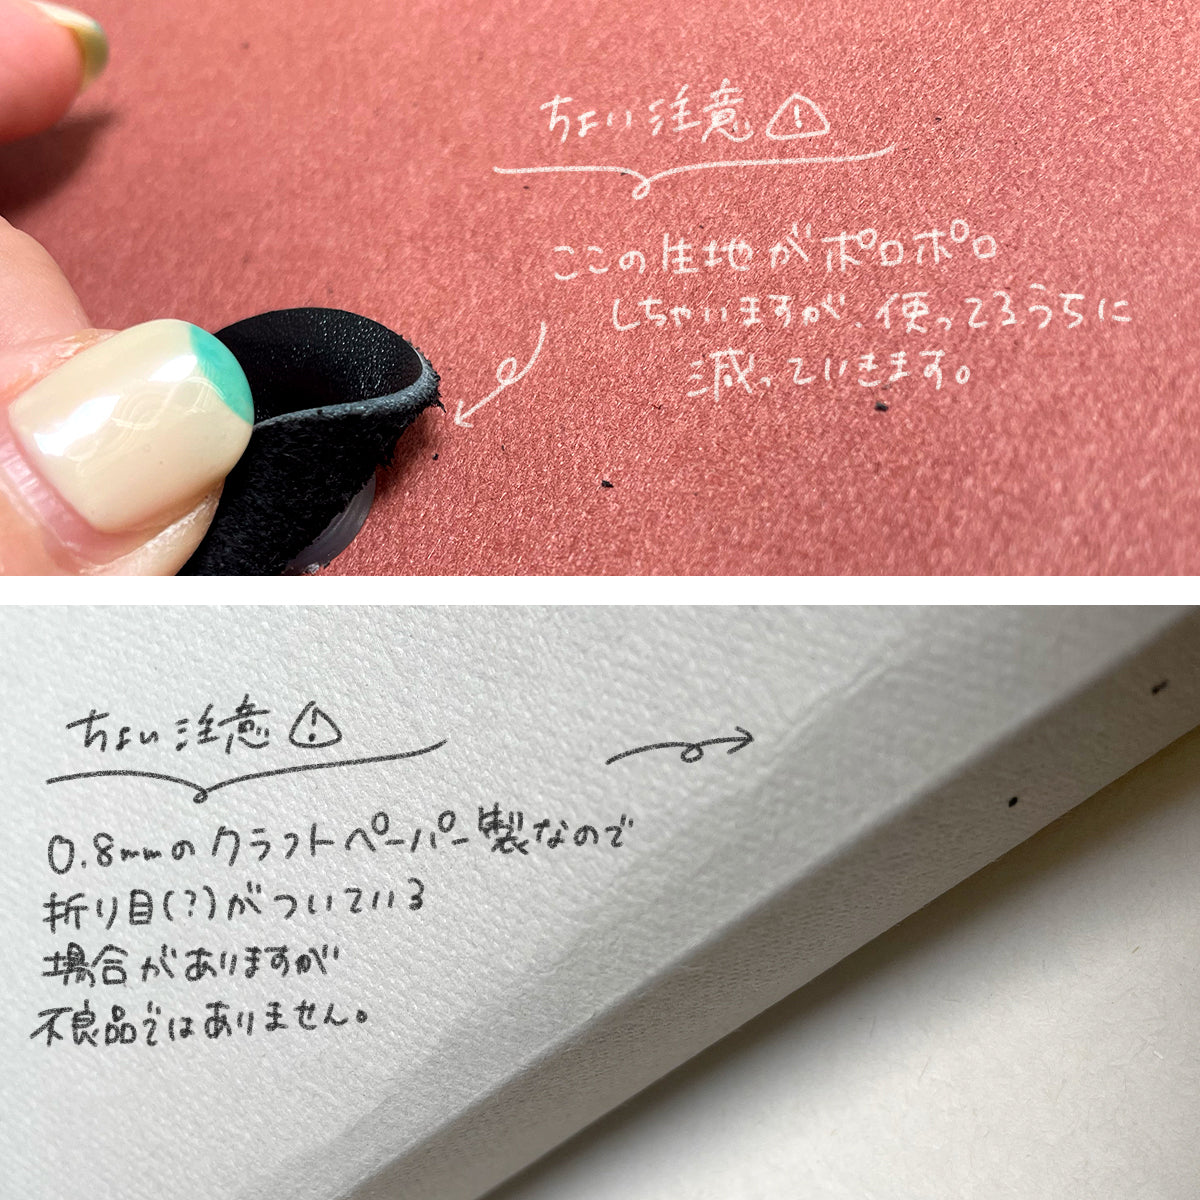 ちょい注意⚠
ここの生地がポロポロ
しちゃいますが、使ってるうちに
減っていきます。
ちょい注意⚠
0.8mmのクラフトペーパー製なので
折り目(?)がついている
場合がありますが
不良品ではありません。